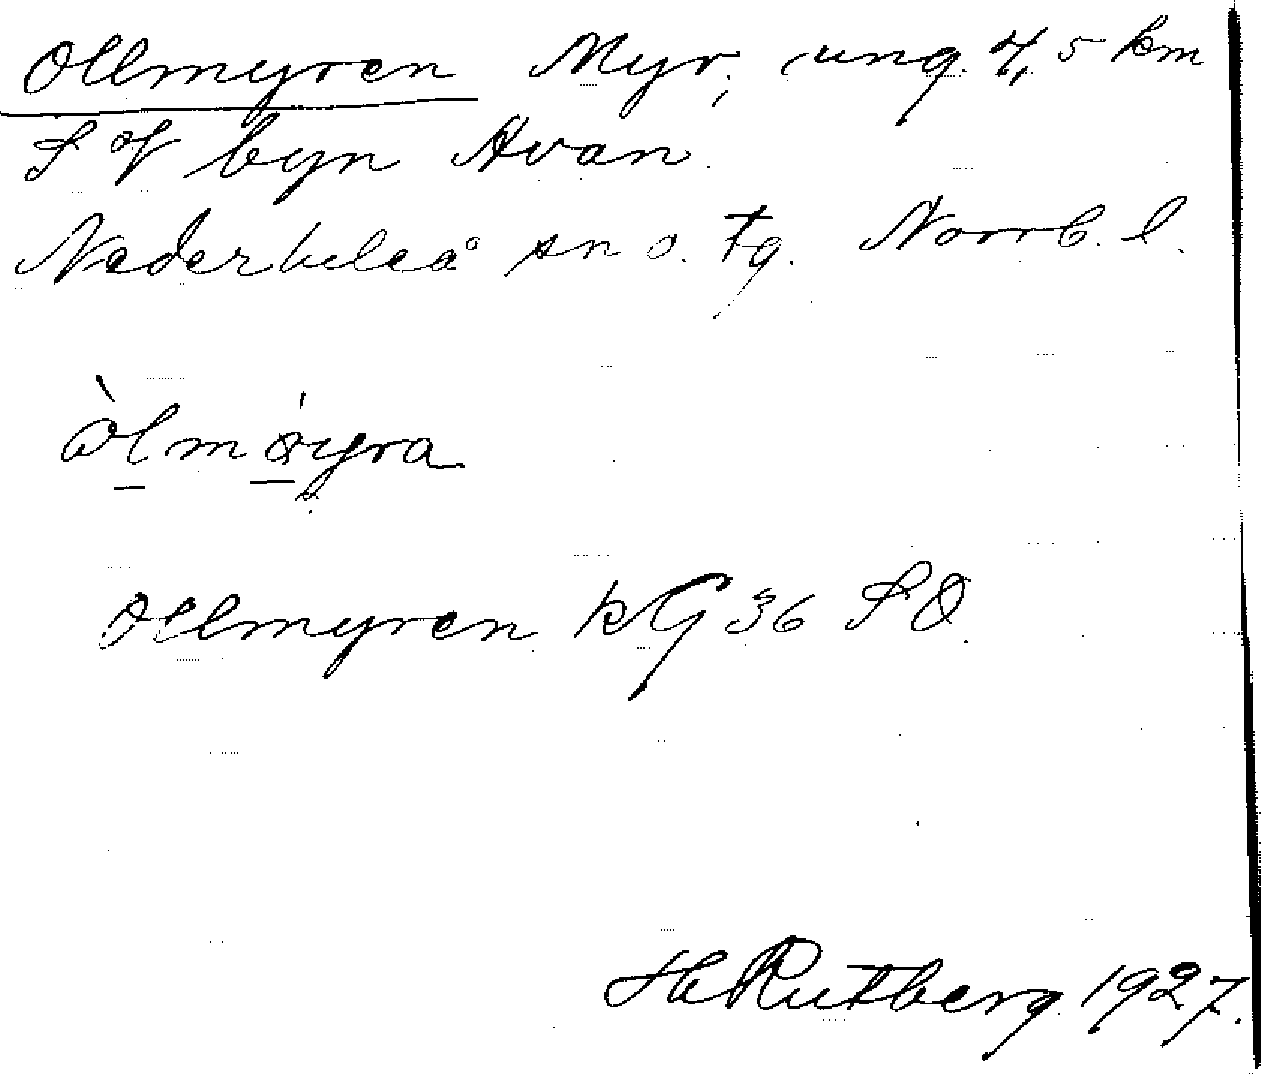 Ollmyren Myr, ung. 4,5 km
S of byn Avan.
Nederluleå sn o. tg. Norrb. l.
Ollmyren kG 36 SO.
H Rutberg 1927.